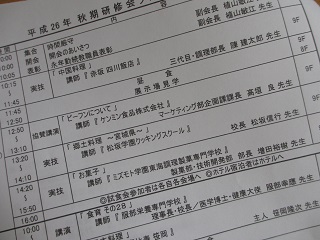 平成26年 秋期研修会
内 容
集合 時間厳守
開会 開会のあいさつ 副会長 植山敏江 先生 9F
表彰 永年勤続教職員表彰
10:15
11:45
実技 「中国料理」
講師『赤坂 四川飯店』 三代目・調理部長 陳 建太郎 先生 9F
11:45
12:50
昼 食
展 示 場 見 学
12:50
13:10
協賛講演 「ビーフンについて」
講師『ケンミン食品株式会社』 マーケティング部企画課課長 高垣 良 先生 9F
13:10
14:20
実技 「郷土料理 ～宮城県～」
講師『松坂学園クッキングスクール』 校長 松坂信行 先生 9F
14:20
15:50
実技 「お菓子」
講師『ミズモト学園東海調理製菓専門学校』 製菓部・技術開発部 部長 増田裕樹 先生
◎試食会参加者は各自各会場へ ◎ホテル宿泊者はホテルへ
10:00
講演 「食育 その28」
講師『服部栄養専門学校』 理事長・校長／医学博士・健康大使 服部幸應 先生
主人 笹岡隆次 先生